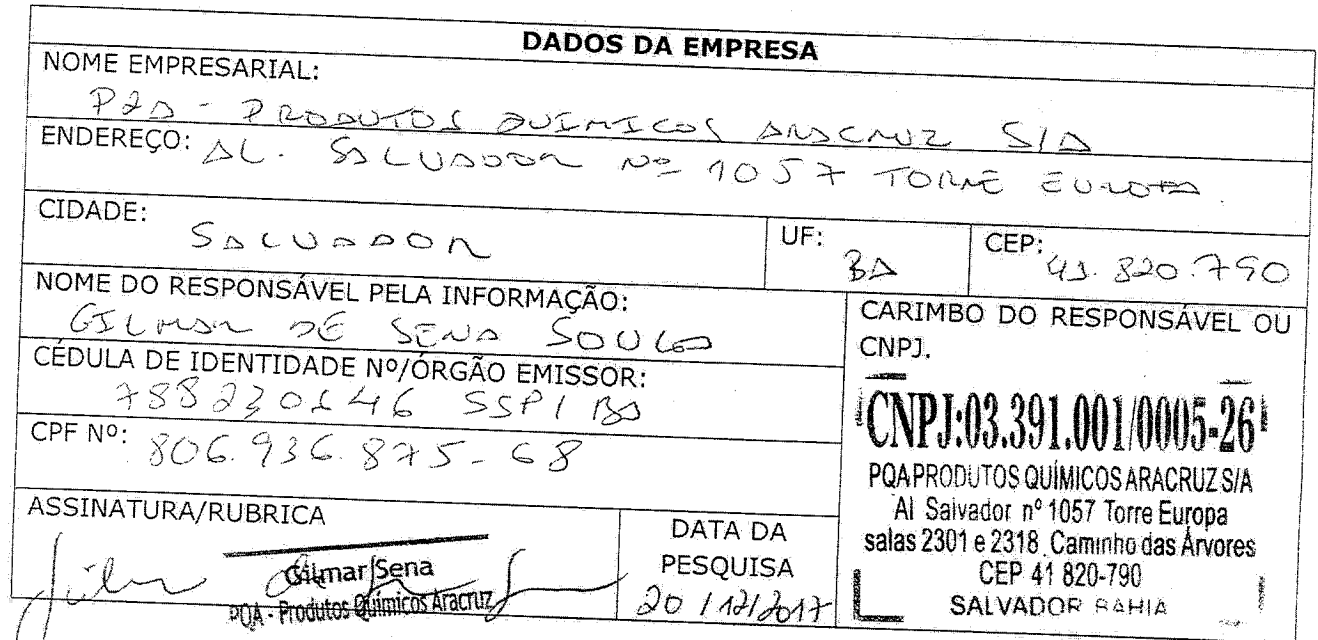 DADOS DA EMPRESA
NOME EMPRESARIAL:
PQA - PRODUTOS QUIMICOS ARACRUZ S/A
ENDEREÇO: AL. SALVADOR Nº 1057 TORRE EUROPA
CIDADE:
SALVADOR
UF:
BA
CEP: 41.820.790
NOME DO RESPONSÁVEL PELA INFORMAÇÃO:
GILMAR DE SENA SOUZA
CÉDULA DE IDENTIDADE Nº/ÓRGÃO EMISSOR:
SSP/BA
CPF Nº: 806.936.875-68
ASSINATURA/RUBRICA
Gilmar Sena
PQA - Produtos Químicos Aracruz
DATA DA
PESQUISA
20/12/2017
CARIMBO DO RESPONSÁVEL OU
CNPJ.
CNPJ:03.391.001/0005-26
PQA PRODUTOS QUÍMICOS ARACRUZ S/A
Al Salvador nº 1057 Torre Europa
salas 2301 e 2318 Caminho das Arvores
CEP 41 820-790
SALVADOR BAHIA